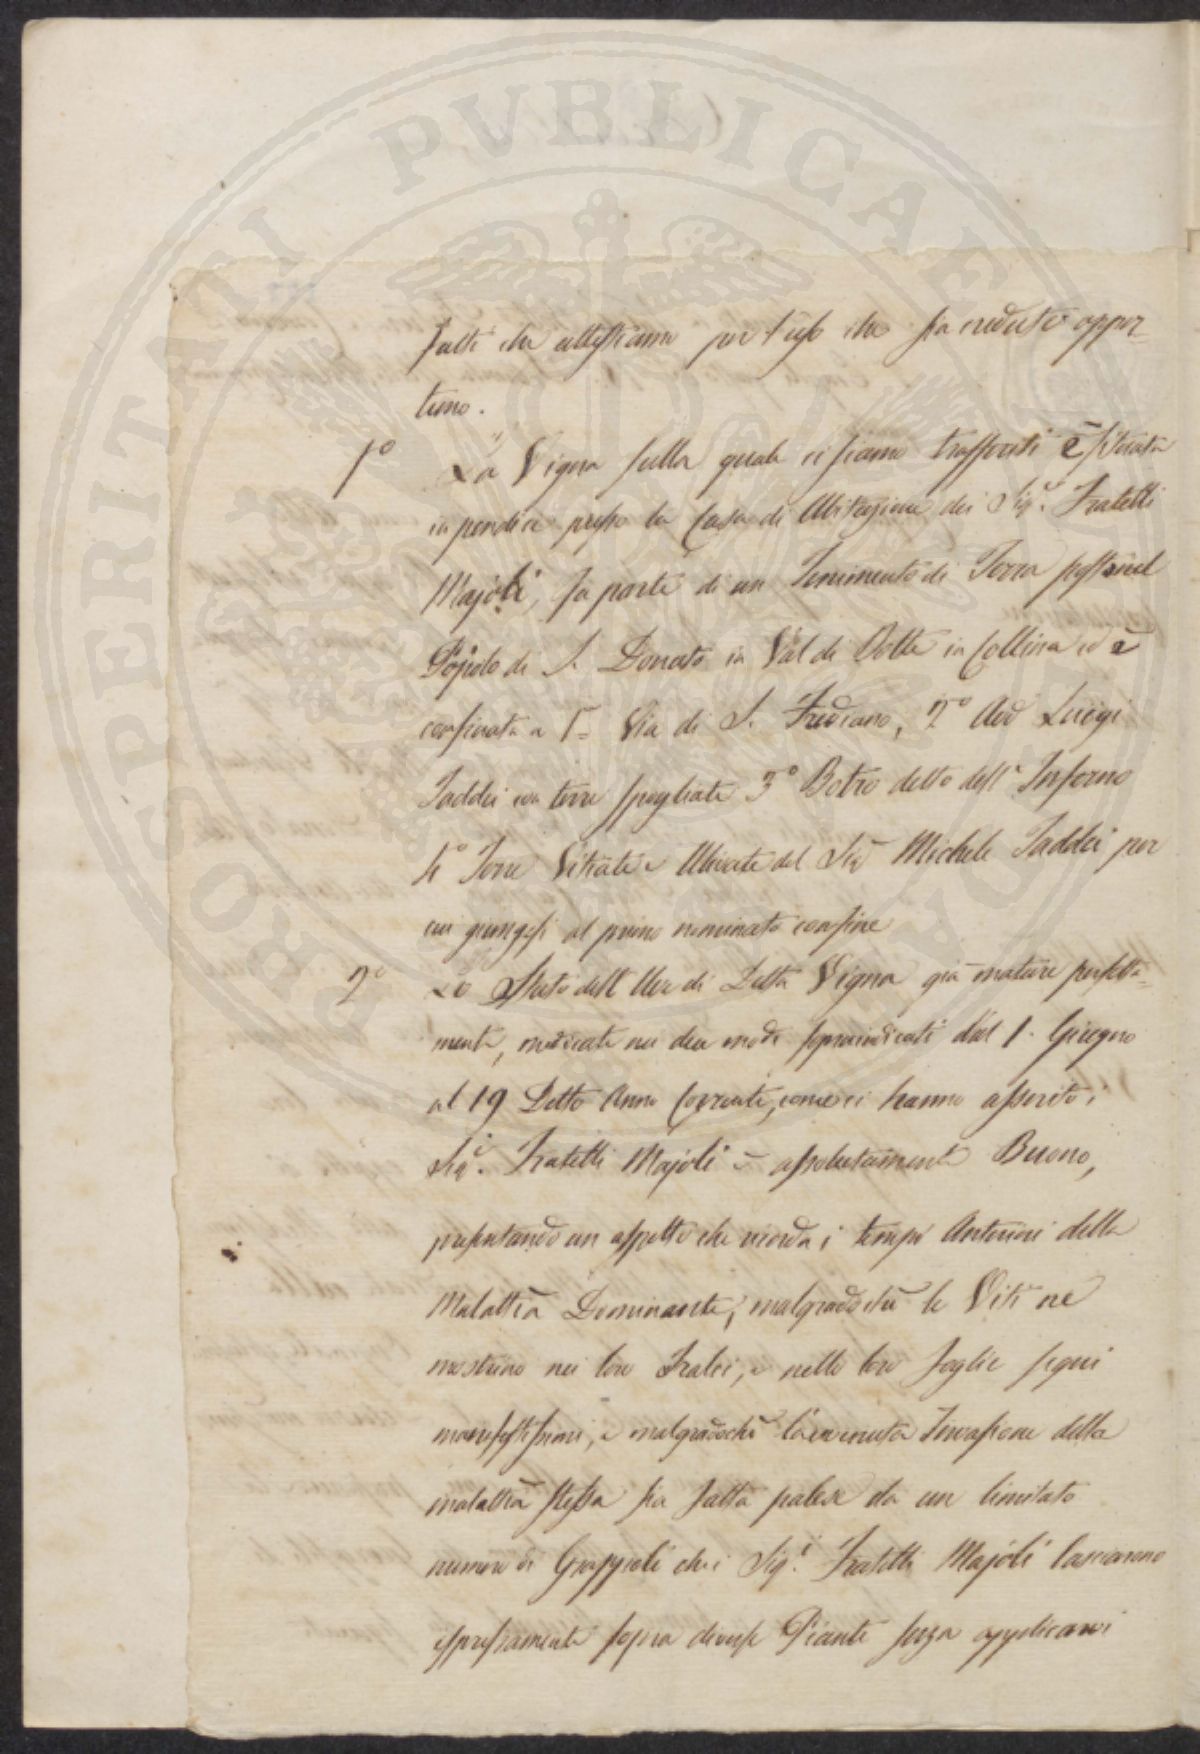 PROSPERITATI PUBLICAE
fatti che attestiamo per l'uso che sia creduto oppor-
tuno.
1º La Vigna sulla quale ci siamo trasferiti è situata
in pendice presso la Casa di Abitazione dei Sigi. Fratelli
Majoli, fa parte di un Tenimento di Terra posto nel
Popolo di S. Donato in Val di Botte in Collina ed è
confinata a 1º Via di S. Frediano, 2º Luigi
Taddei con terre spogliate 3º Botro detto dell' Inferno
4º Terre Vitiate e Ulivate del Sig Michele Taddei per
cui giungesi al primo nominato confine
2º Lo Stato dell Uva di Detta Vigna già mature perfetta-
mente, medicate nei due modi sopraindicati dal 1. Giugno
al 19 Detto Anno Corrente, come ci hanno asserito i
Sigi. Fratelli Majoli è assolutamente Buono,
presentando un aspetto che ricorda i tempi Anteriori della
Malattia Dominante, malgrado che le Viti ne
mostrino nei loro Tralci, e nelle loro foglie segni
manifestissimi, e malgradochè l'avvenuta Invasione della
malattia stessa sia fatta palese da un limitato
numero di Grappoli che i Sigi. Fratelli Majoli lasciarono
espressamente sopra diverse Piante senza applicarvi